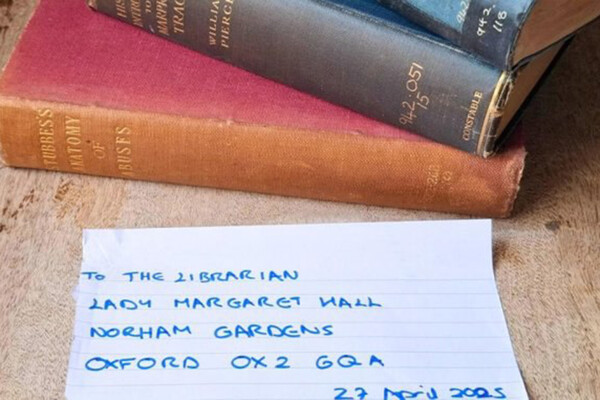 TO THE
TRAC
WILLIAM
PIERCE
942.051
15
CONSTABLE
942
118
STUBBES'S
ANATOMY
OF
ABUSES
TO THE LIBRARIAN
LADY MARGARET HALL
NORHAM GARDENS
OXFORD OX2 6QA
27 April 2025